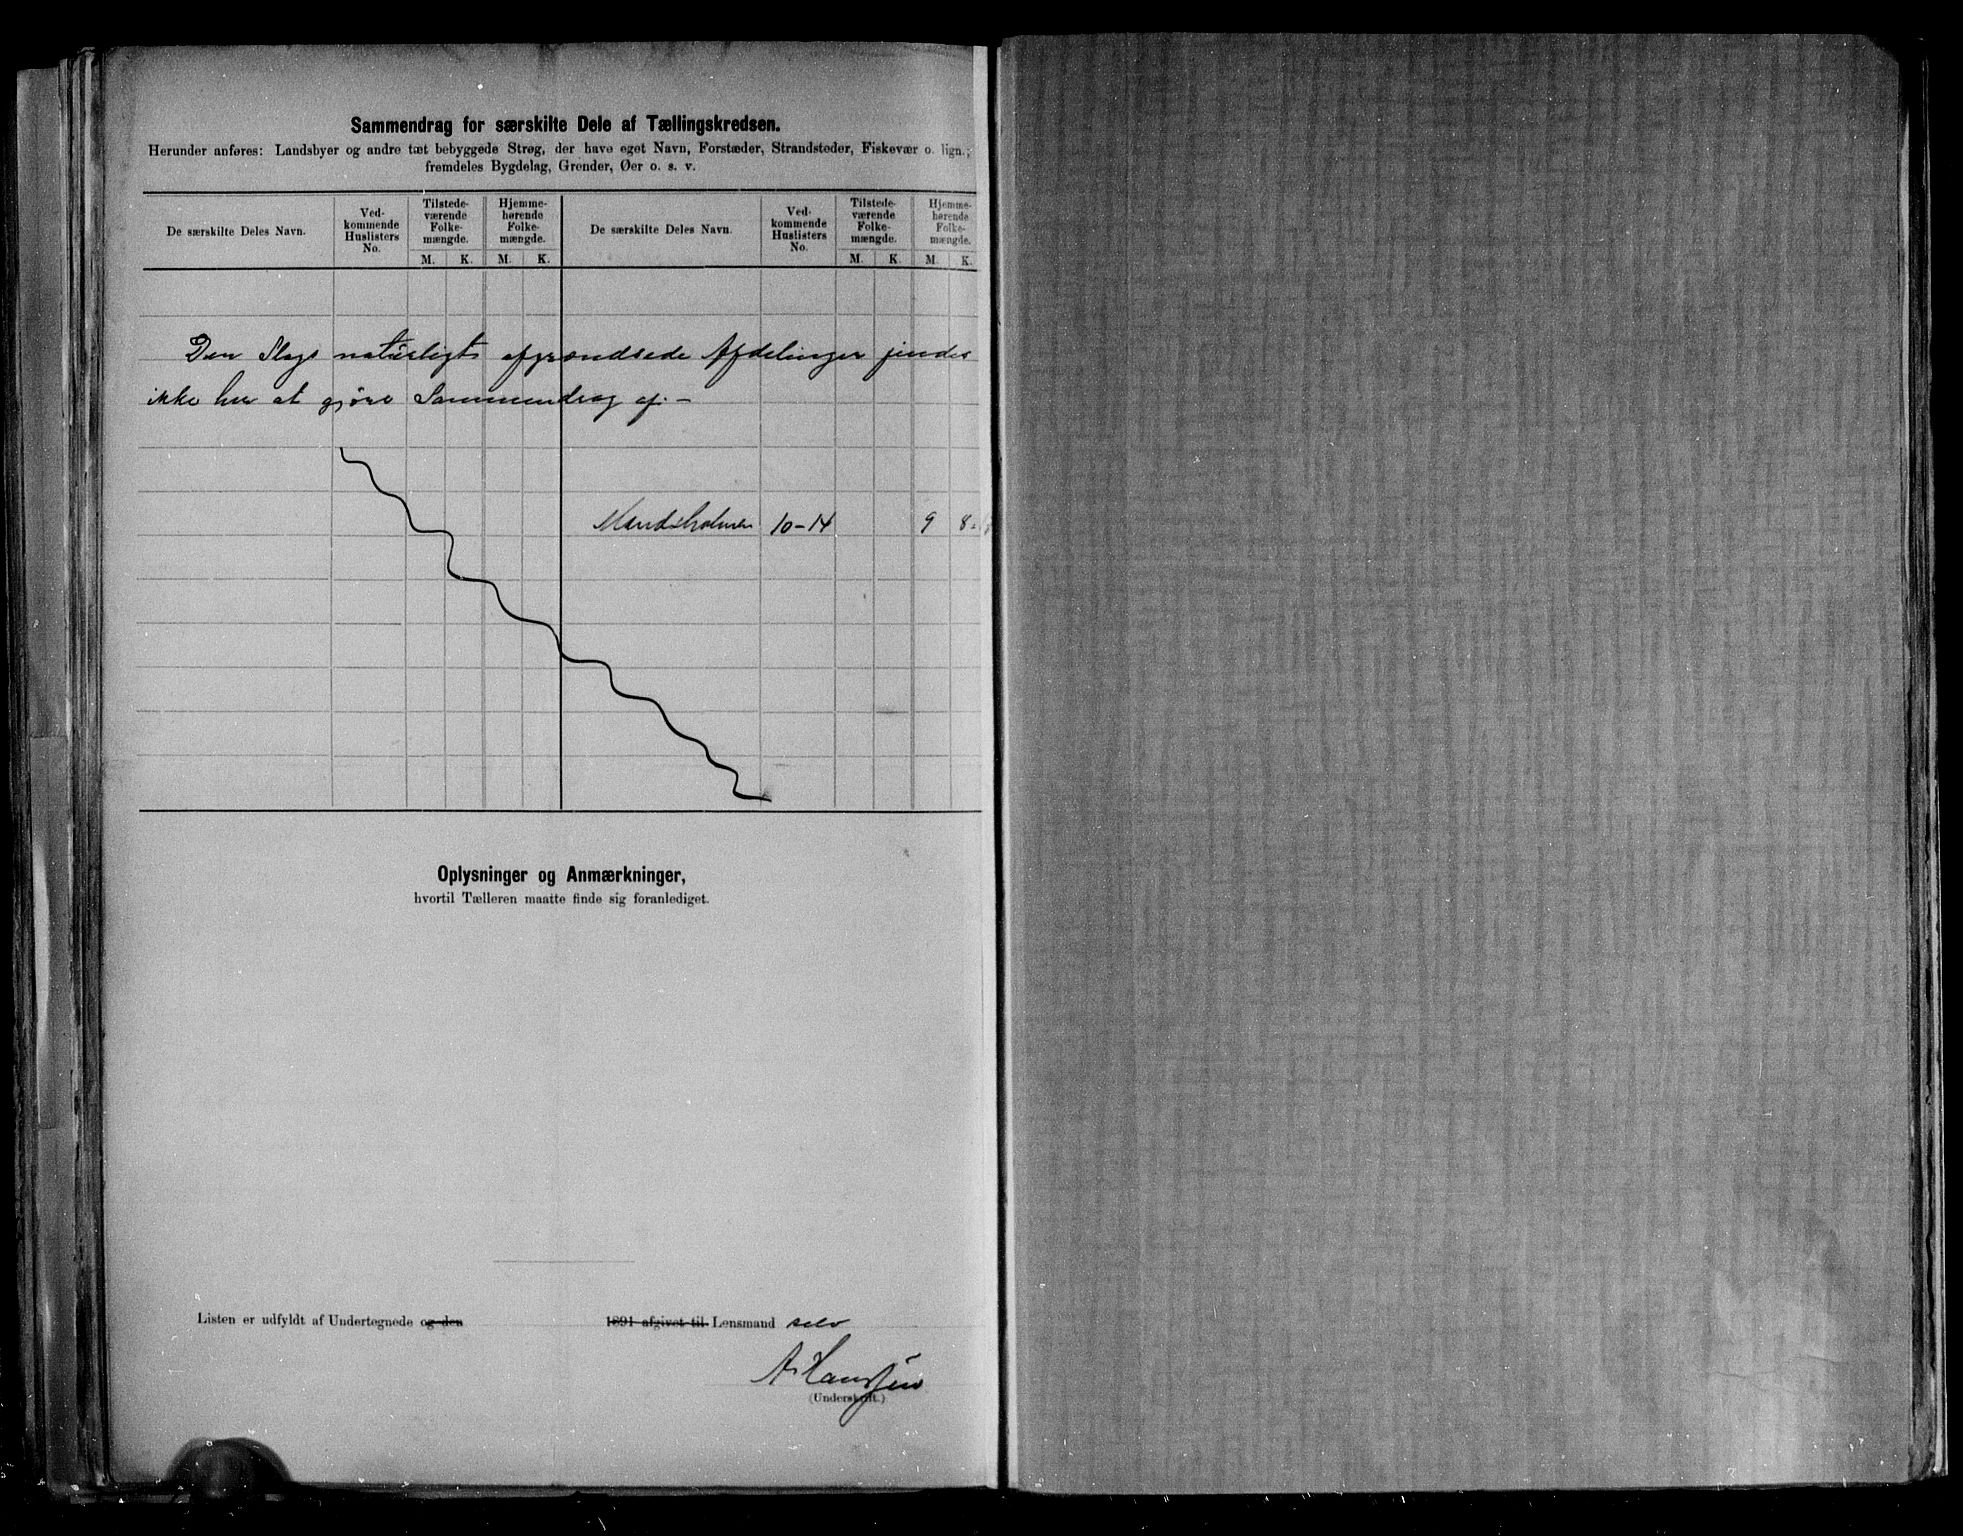 Sammendrag for særskilte Dele af Tællingskredsen.
Herunder anføres: Landsbyer og andre tæt bebyggede Strøg, der have eget Navn, Forstæder, Strandsteder, Fiskevær o. lign.;
fremdeles Bygdelag, Grender, Øer o. s. v.
De særskilte Deles Navn. Ved-kommende Huslisters No. Tilstede-værende Folke-mængde. Hjemme-hørende Folke-mængde. De særskilte Deles Navn. Ved-kommende Huslisters No. Tilstede-værende Folke-mængde. Hjemme-hørende Folke-mængde.
M. K. M. K. M. K. M. K.
Den Slags naturligt afgrændsede Afdelinger findes
ikke her at gjøre Sammendrag af. –
10-14 9 8
Oplysninger og Anmærkninger,
hvortil Tælleren maatte finde sig foranlediget.
Listen er udfyldt af Undertegnede og den 1891 afgivet til Lensmand selv
A. Hanssen
(Underskrift.)